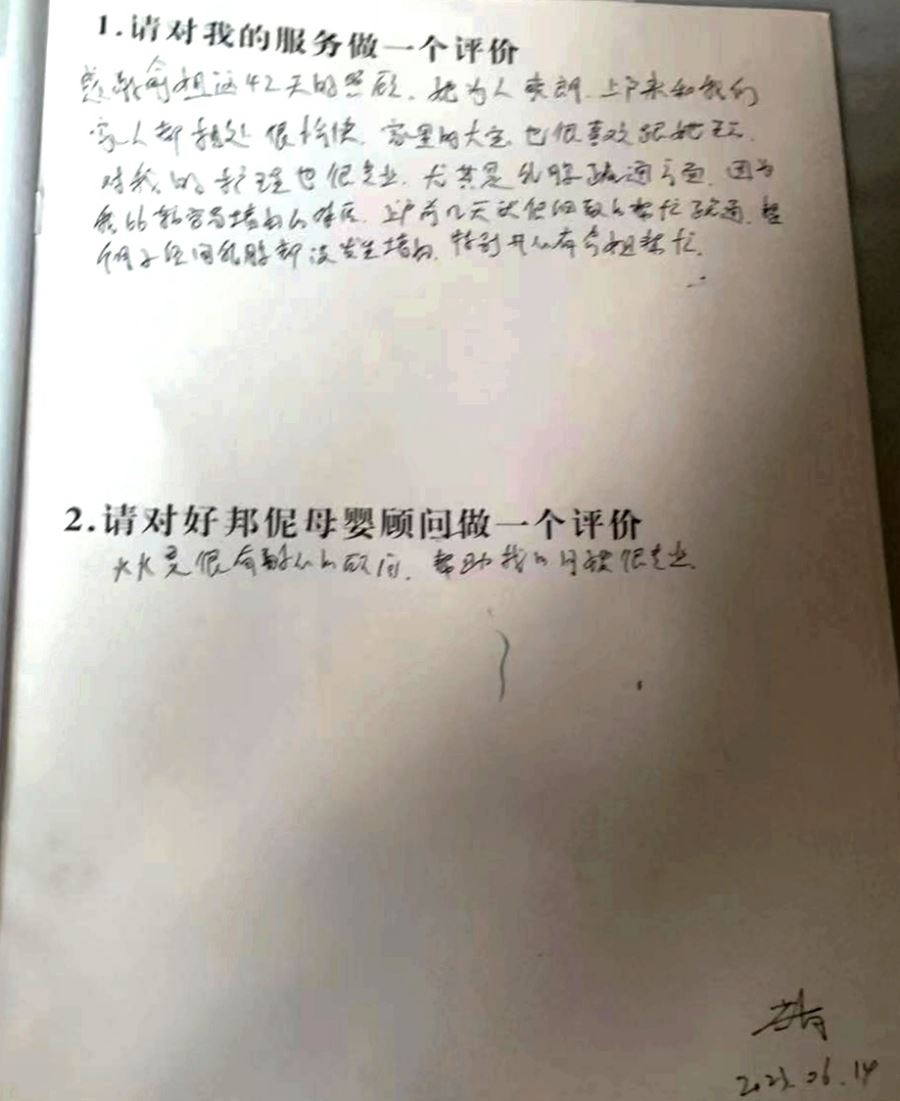 1.请对我的服务做一个评价
感谢俞姐这42天的照顾。她为人爽朗，上户来和我们
家人都相处很愉快，家里的大宝也很喜欢跟她玩。
对我的护理也很专业，尤其是乳腺疏通方面，因为
我比较容易堵奶的体质，上户前几天就很细致的帮忙疏通，整
个月子期间乳腺都没发生堵奶，特别开心有俞姐帮忙。
2.请对好邦伲母婴顾问做一个评价
是很有耐心的顾问，帮助我的月嫂很专业。
2023.06.14